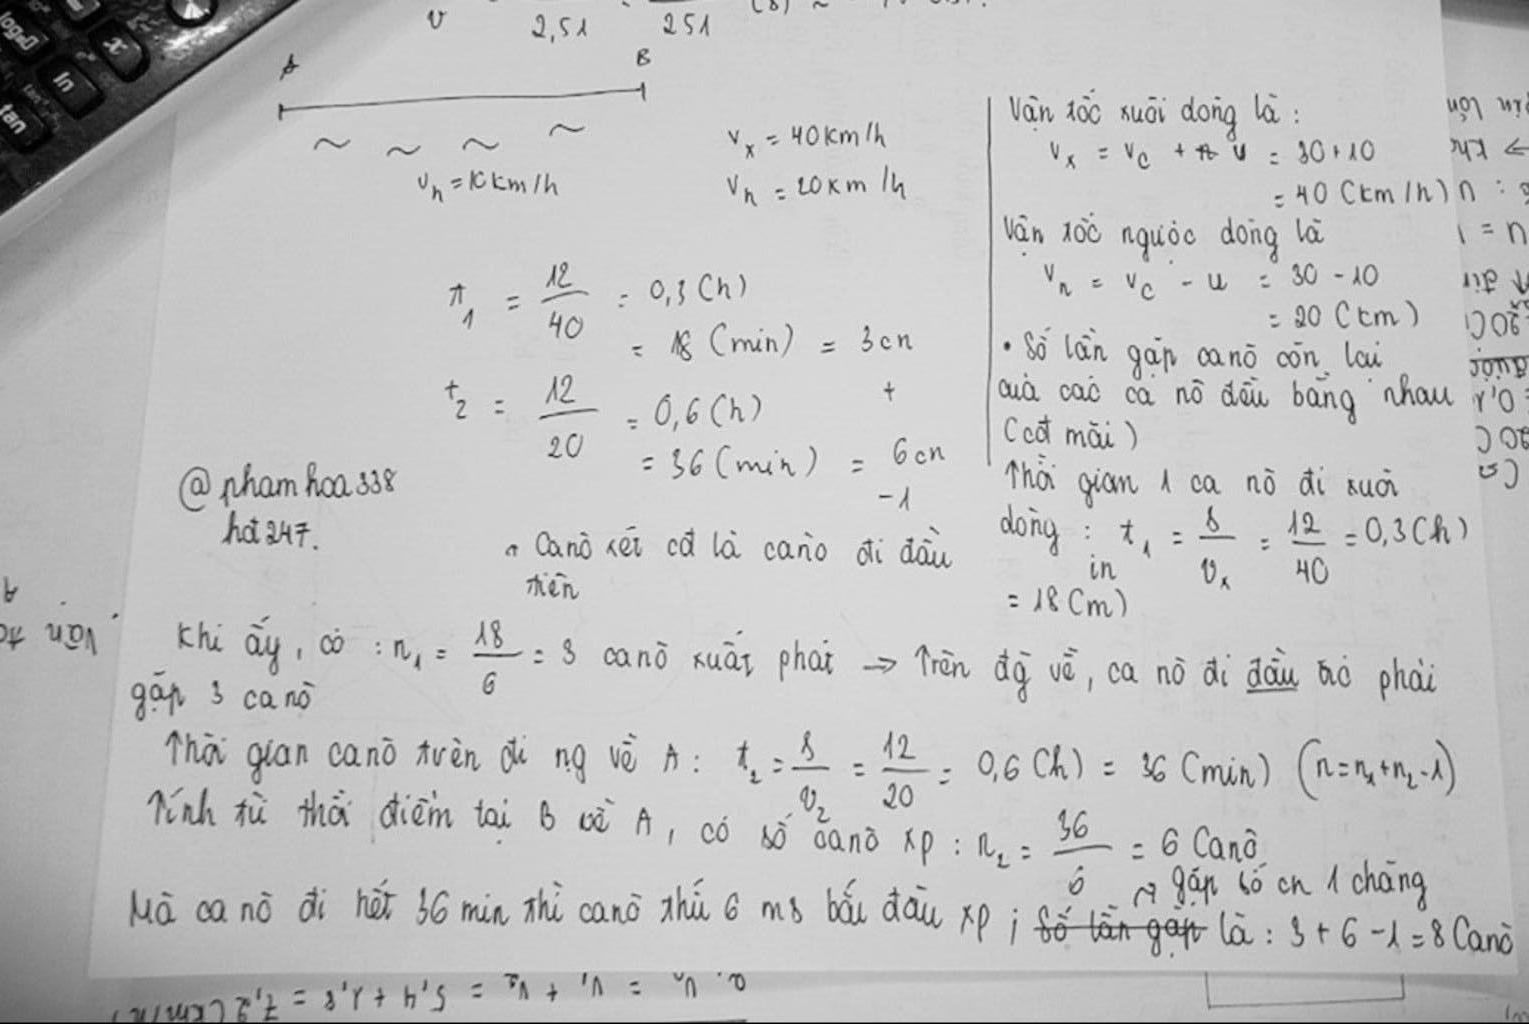 A B
vₙ = 10 km/h
vₓ = 40 km/h
vₙ = 20 km/h
t₁ = 12/40 = 0,3 (h)
= 18 (min) = 3 cn
+
t₂ = 12/20 = 0,6 (h)
= 36 (min) = 6 cn
-1
@phamhoa338
hd247.
Canô xét cđ là canô đi đầu
tiên
Vận tốc xuôi dòng là :
vₓ = v꜀ + u = 30 + 10
= 40 (km/h)
Vận tốc ngược dòng là
vₙ = v꜀ - u = 30 - 10
= 20 (km)
• Số lần gặp canô còn lại
của các ca nô đều bằng nhau
(cđ mãi)
Thời gian 1 ca nô đi xuôi
dòng : t₁ = s/vₓ = 12/40 = 0,3 (h)
in
= 18 (m)
Khi ấy, có : n₁ = 18/6 = 3 canô xuất phát → Trên đg về, ca nô đi đầu phải
gặp 3 ca nô
Thời gian canô trên đi ng về A : t₂ = s/v₂ = 12/20 = 0,6 (h) = 36 (min) (n = n₁ + n₂ - 1)
Tính từ thời điểm tại B về A, có số canô xp : n₂ = 36/6 = 6 Canô
→ gặp số cn 1 chặng
Mà ca nô đi hết 36 min thì canô thứ 6 ms bắt đầu xp ; Số lần gặp là : 3 + 6 - 1 = 8 Canô